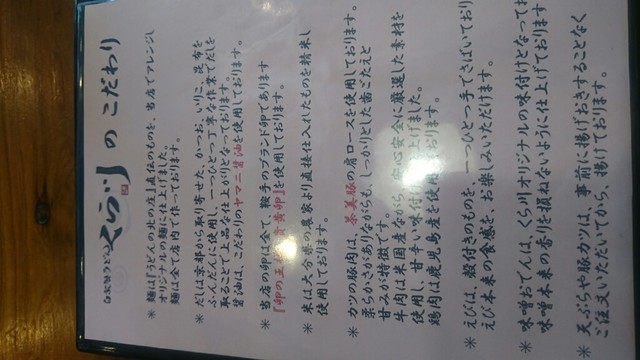 くら川のこだわり
※ 麺は『うどんの北の庄』直伝のものを、当店でアレンジし
オリジナルの麺に仕上げました。
麺は全て店内で作っております。
※ だしは京都から取り寄せた、かつお、いりこ、昆布を
ふんだんに使用し、一つひとつ丁寧な仕業でだしを
取ることで上品な仕上がりとなっております。
醤油は、こだわりのヤマニ醤油を使用しております。
※ 当店の卵は全て、鞍手のブランド卵であります
『卵の王 黄卵』を使用しております。
※ 米は大分県の農家より直接仕入れたものを精米し
使用しております。
※ カツの豚肉は、茶美豚の肩ロースを使用しております。
柔らかさがありながらも、しっかりとした歯ごたえと
甘みが特徴です。
牛肉は米国産ながら、安心安全に厳選した素材を
使用し、甘辛い味付け 上げました。
鶏肉は鹿児島産を使用 ます。
※ えびは、殻付きのものを、一つひとつ手でさばいており
えび本来の食感を、お楽しみいただけます。
※ 味噌おでんは、くら川オリジナルの味付けとなってお
味噌本来の香りを損ねないように仕上げております
※ 天ぷらや豚カツは、事前に揚げおきすることなく
ご注文いただいてから、揚げております。